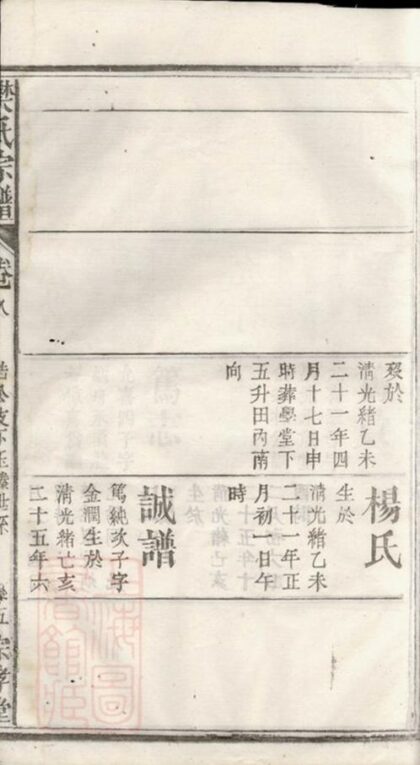 歿於
清光緒乙未
二十一年四
月十七日申
時葬學堂下
五升田內南
向
楊氏
生於
清光緒乙未
二十一年正
月初一日午
時
誠譜
篤純次子字
金潤生於
清光緒己亥
二十五年六
氏宗譜
卷八